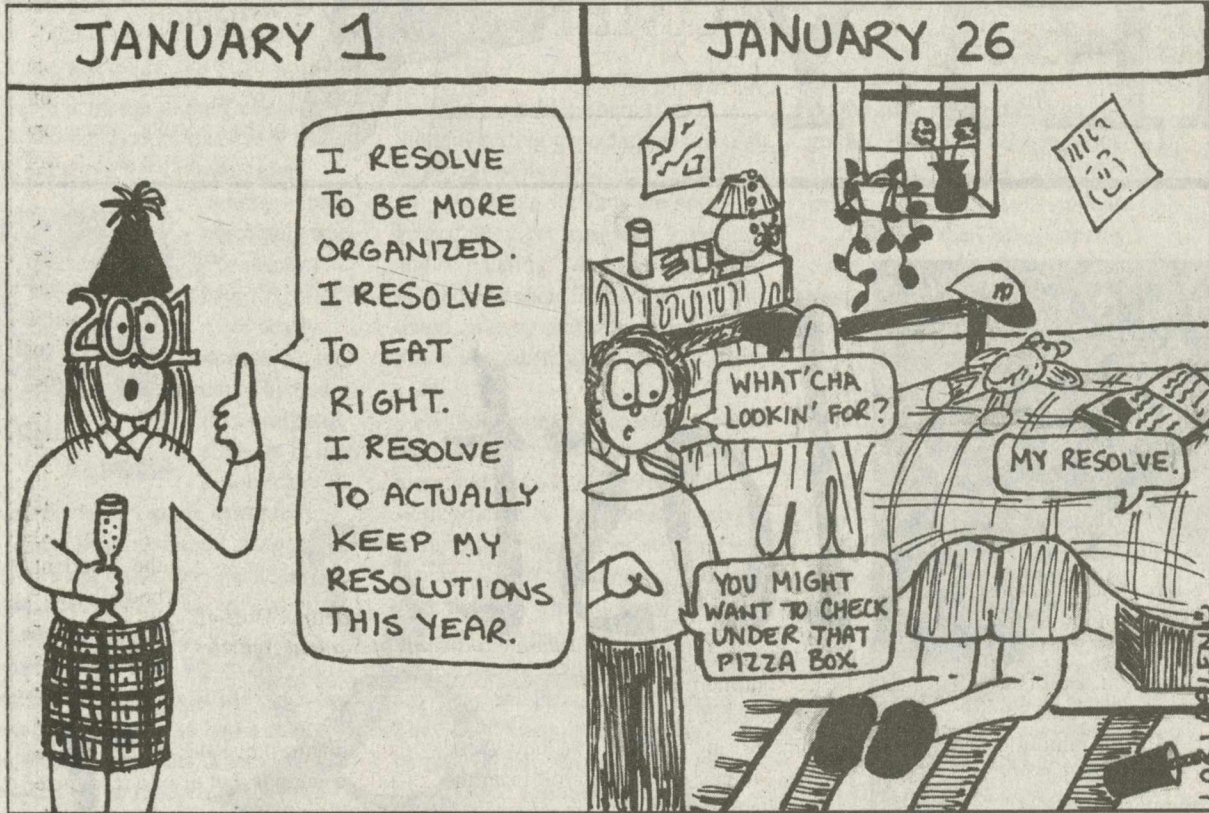 JANUARY 1
JANUARY 26
I RESOLVE
TO BE MORE
ORGANIZED.
I RESOLVE
TO EAT
RIGHT.
I RESOLVE
TO ACTUALLY
KEEP MY
RESOLUTIONS
THIS YEAR.
2001
WHAT'CHA
LOOKIN' FOR?
MY RESOLVE.
YOU MIGHT
WANT TO CHECK
UNDER THAT
PIZZA BOX.